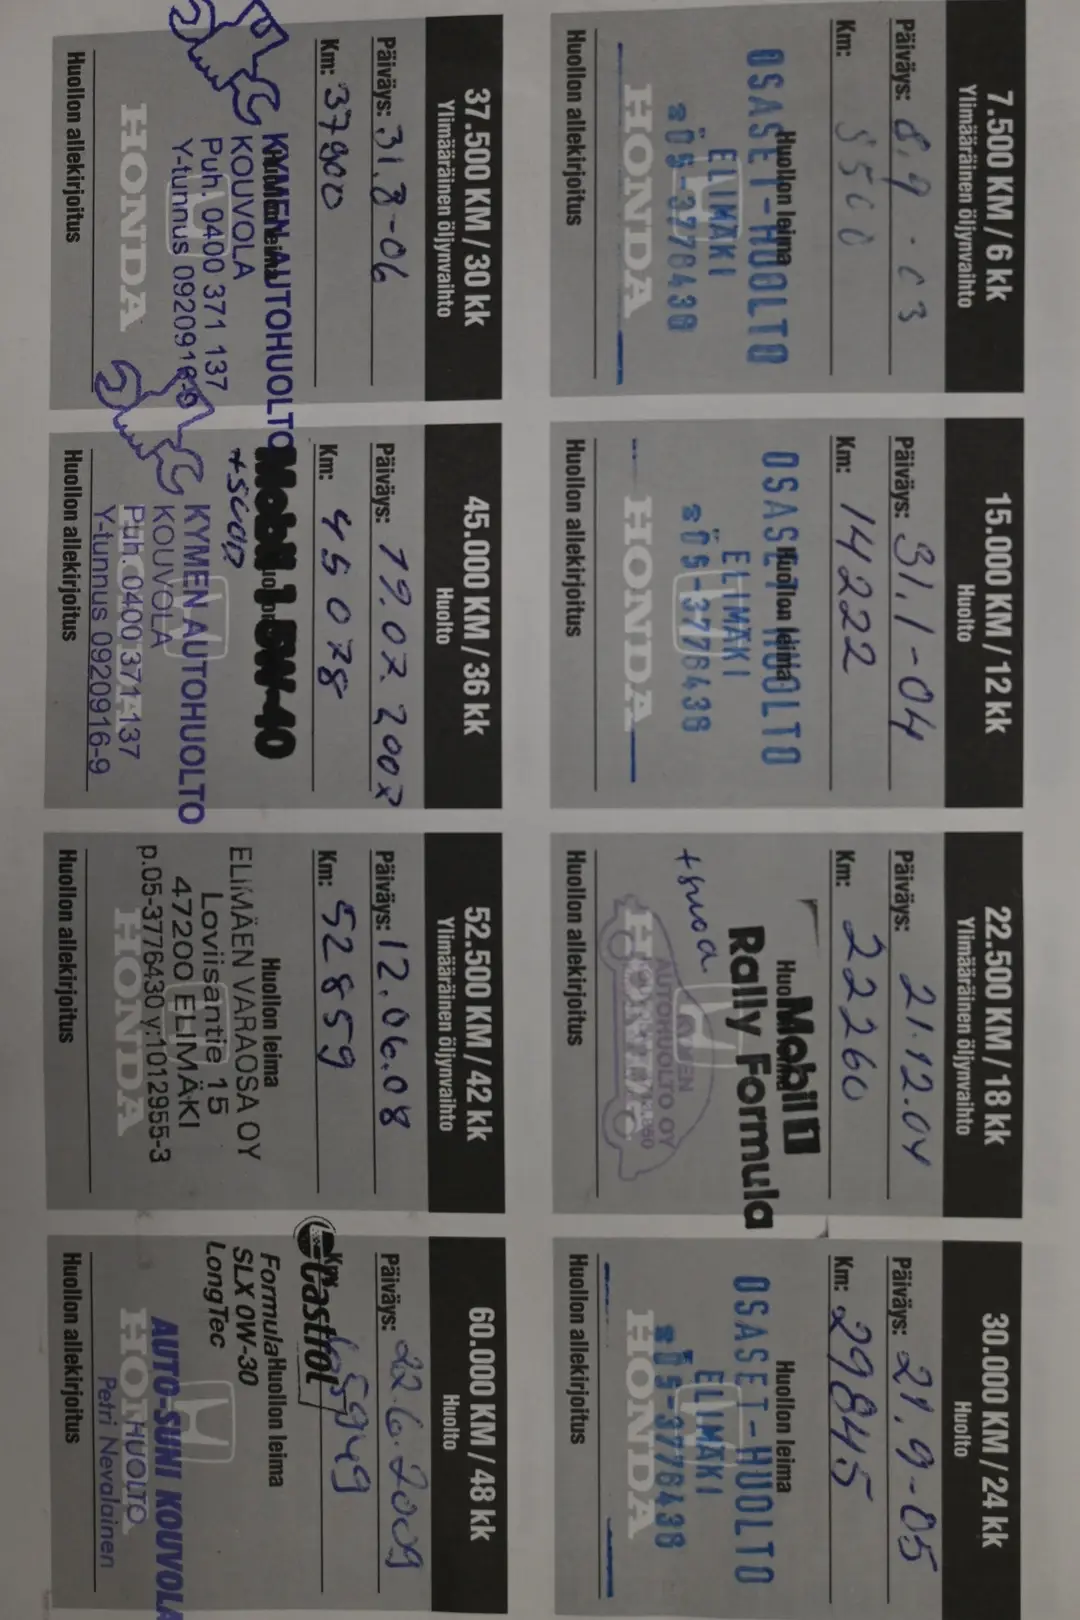 7.500 KM / 6 kk
Ylimääräinen öljynvaihto
Päiväys: 8.9.03
Km: 8500
Huollon leima
OSASET-HUOLTO
ELIMÄKI
☎ 05-3776436
HONDA
Huollon allekirjoitus
15.000 KM / 12 kk
Huolto
Päiväys: 31.1-04
Km: 14222
Huollon leima
OSASET-HUOLTO
ELIMÄKI
☎ 05-3776436
HONDA
Huollon allekirjoitus
22.500 KM / 18 kk
Ylimääräinen öljynvaihto
Päiväys: 21.12.04
Km: 22260
Mobil 1
Rally Formula
+ suod.
KYMEN
AUTOHUOLTO OY
HONDA
Huollon allekirjoitus
30.000 KM / 24 kk
Huolto
Päiväys: 21.9-05
Km: 29845
Huollon leima
OSASET-HUOLTO
ELIMÄKI
☎ 05-3776436
HONDA
Huollon allekirjoitus
37.500 KM / 30 kk
Ylimääräinen öljynvaihto
Päiväys: 31.8-06
Km: 37900
KYMEN AUTOHUOLTO
KOUVOLA
Puh. 0400 371 137
Y-tunnus 0920916-9
HONDA
Huollon allekirjoitus
45.000 KM / 36 kk
Huolto
Päiväys: 19.07.2007
Km: 45078
Mobil 1 5W-40
+ suod
KYMEN AUTOHUOLTO
KOUVOLA
Puh. 0400 371 137
Y-tunnus 0920916-9
Huollon allekirjoitus
52.500 KM / 42 kk
Ylimääräinen öljynvaihto
Päiväys: 12.06.08
Km: 52859
Huollon leima
ELIMÄEN VARAOSA OY
Loviisantie 15
47200 ELIMÄKI
p.05-3776430 y:1012955-3
HONDA
Huollon allekirjoitus
60.000 KM / 48 kk
Huolto
Päiväys: 22.6.2009
Castrol
Formula
Huollon leima
SLX 0W-30
LongTec
AUTO-SUNI KOUVOLA
HUOLTO
HONDA
Petri Nevalainen
Huollon allekirjoitus